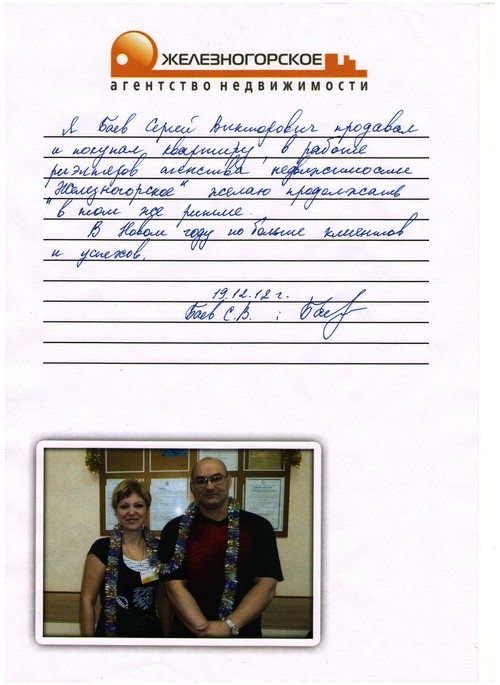 ЖЕЛЕЗНОГОРСКОЕ
агентство недвижимости
Я Баев Сергей Викторович продавал
и покупал квартиру, в работе
риэлтеров агенства недвижимости
"Железногорское" желаю продолжать
в том же ритме.
В Новом году по больше клиентов
и успехов.
19.12.12 г.
Баев С.В. ; Баев